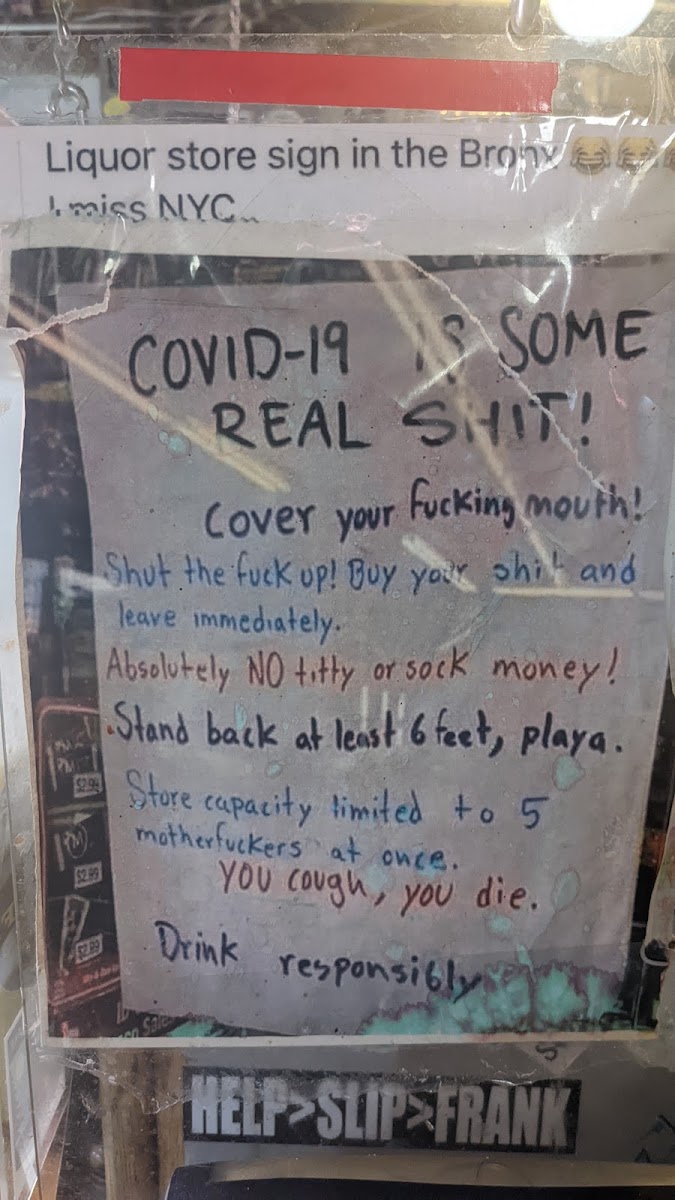 Liquor store sign in the Bronx 😂😂😂
I miss NYC..
COVID-19 IS SOME
REAL SHIT!
Cover your fucking mouth!
Shut the fuck up! Buy your shit and
leave immediately.
Absolutely NO titty or sock money!
Stand back at least 6 feet, playa.
Store capacity limited to 5
motherfuckers at once.
YOU cough, you die.
Drink responsibly
$2.99
$2.99
HELP>SLIP>FRANK